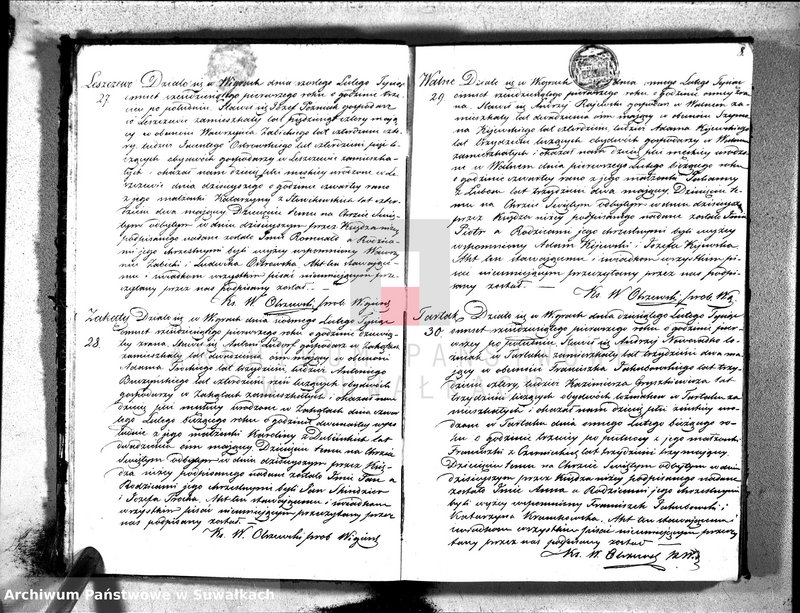 Leszczewo Działo się w Wigrach dnia szóstego Lutego Tysiąc
27. ośmset sześćdziesiątego pierwszego roku o godzinie trze-
ciej po południu. Stawił się Józef gospodarz
w Leszczewie zamieszkały lat cztery mają-
cy w obecności Wawrzyńca Zabickiego lat czterdzieści czte-
ry, tudzież Ostrowskiego lat czterdzieści pięć li-
czących obydwóch gospodarzy w Leszczewie zamieszka-
łych i okazał nam dziecię płci męskiej urodzone w Le-
szczewie dnia dzisiejszego o godzinie czwartej rano
z jego małżonki Katarzyny z lat czter-
dzieści dwa mającej. Dziecięciu temu na Chrzcie Świę-
tym odbytym w dniu dzisiejszym przez Księdza niżej
podpisanego nadane zostało Imię Romuald a Rodzica-
mi jego chrzestnymi byli wyżej wspomniony Wawrzy-
niec Zabicki i Ludwika Ostrowska. Akt ten stawające-
mu i świadkom wszystkim pisać nieumiejącym prze-
czytany przez nas podpisany został —
Ks. W. Olszewski prob. Wigiersk
Zakąty Działo się w Wigrach dnia siódmego Lutego Tysiąc
28. ośmset sześćdziesiątego pierwszego roku o godzinie dziewią-
tej zrana. Stawił się Antoni gospodarz w Zakątach
zamieszkały lat dwadzieścia ośm mający w obecności
Adama lat trzydzieści, tudzież Antoniego
Buczyńskiego lat czterdzieści liczących obydwóch
gospodarzy w Zakątach zamieszkałych i okazał nam
dziecię płci męskiej urodzone w Zakątach dnia czwar-
tego Lutego bieżącego roku o godzinie dwunastej w po-
łudnie z jego małżonki Karoliny z lat
dwadzieścia ośm mającej. Dziecięciu temu na Chrzcie
Świętym odbytym w dniu dzisiejszym przez Księ-
dza niżej podpisanego nadane zostało Imię Jan a
Rodzicami jego chrzestnymi byli Jan
i Józefa. Akt ten stawającemu i świadkom
wszystkim pisać nieumiejącym przeczytany przez
nas podpisany został —
Ks. W. Olszewski prob Wigiersk
8
Walne Działo się w Wigrach dnia ósmego Lutego Tysiąc
29. ośmset sześćdziesiątego pierwszego roku o godzinie ósmej zra-
na. Stawił się Andrzej Rajewski gospodarz w Walnem za-
mieszkały lat dwadzieścia ośm mający w obecności Szymo-
na Kijewskiego lat czterdzieści, tudzież Adama Kijewskiego
lat trzydzieści liczących obydwóch gospodarzy w Walnem
zamieszkałych i okazał nam dziecię płci męskiej urodzo-
ne w Walnem dnia pierwszego Lutego bieżącego roku
o godzinie czwartej rano z jego małżonki Julianny
z lat trzydzieści dwa mającej. Dziecięciu te-
mu na Chrzcie Świętym odbytym w dniu dzisiejszym
przez Księdza niżej podpisanego nadane zostało Imię
Piotr a Rodzicami jego chrzestnymi byli wyżej
wspomniony Adam Kijewski i Józefa Kijewska.
Akt ten stawającemu i świadkom wszystkim pi-
sać nieumiejącym przeczytany przez nas podpi-
sany został —
Ks. W. Olszewski prob. Wig
Tartak Działo się w Wigrach dnia dziesiątego Lutego Tysiąc
30. ośmset sześćdziesiątego pierwszego roku o godzinie pier-
wszej po południu. Stawił się Andrzej
w Tartaku zamieszkały lat trzydzieści dwa ma-
jący w obecności Franciszka Jakubowskiego lat trzy-
dzieści cztery, tudzież Kazimierza Gryszkiewicza lat
trzydzieści liczących obydwóch w Tartaku za-
mieszkałych i okazał nam dziecię płci żeńskiej uro-
dzone w Tartaku dnia ósmego Lutego bieżącego ro-
ku o godzinie trzeciej po północy z jego małżonki
Franciszki z lat trzydzieści trzy mającej.
Dziecięciu temu na Chrzcie Świętym odbytym w dniu
dzisiejszym przez Księdza niżej podpisanego nadane
zostało Imię Anna a Rodzicami jego chrzestnymi
byli wyżej wspomniony Franciszek Jakubowski i
Katarzyna Krumkowska. Akt ten stawającemu i
świadkom wszystkim pisać nieumiejącym przeczy-
tany przez nas podpisany został
Ks. W. Olszewski
Archiwum Państwowe w Suwałkach